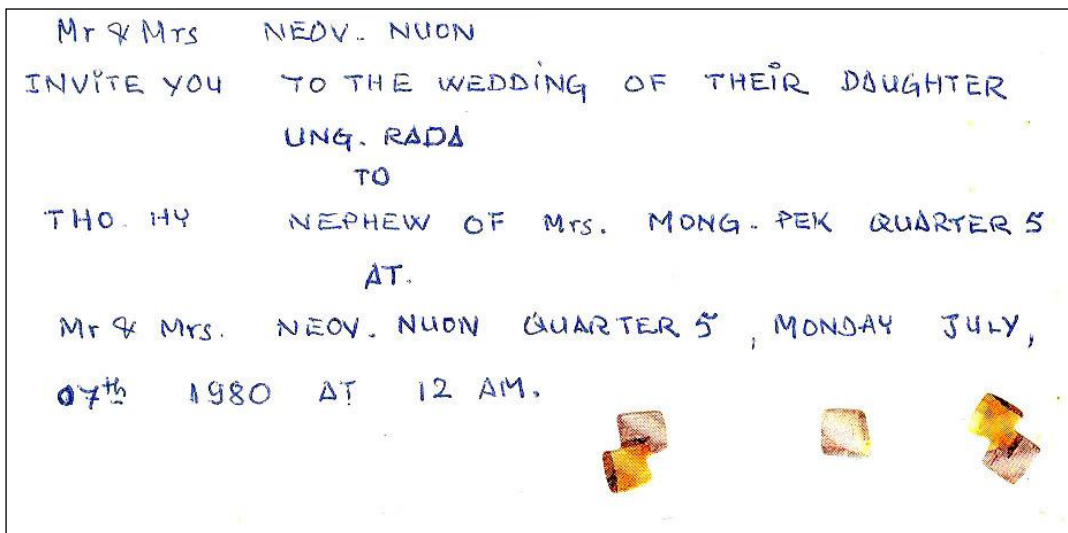 Mr & Mrs NEOV. NUON
INViTE YOU TO THE WEDDiNG OF THEiR DAUGHTER
UNG. RADA
TO
THO. HY NEPHEW OF Mrs. MONG. PEK QUARTER 5
AT.
Mr & Mrs. NEOV. NUON QUARTER 5, MONDAY JULY,
07th 1980 AT 12 AM.